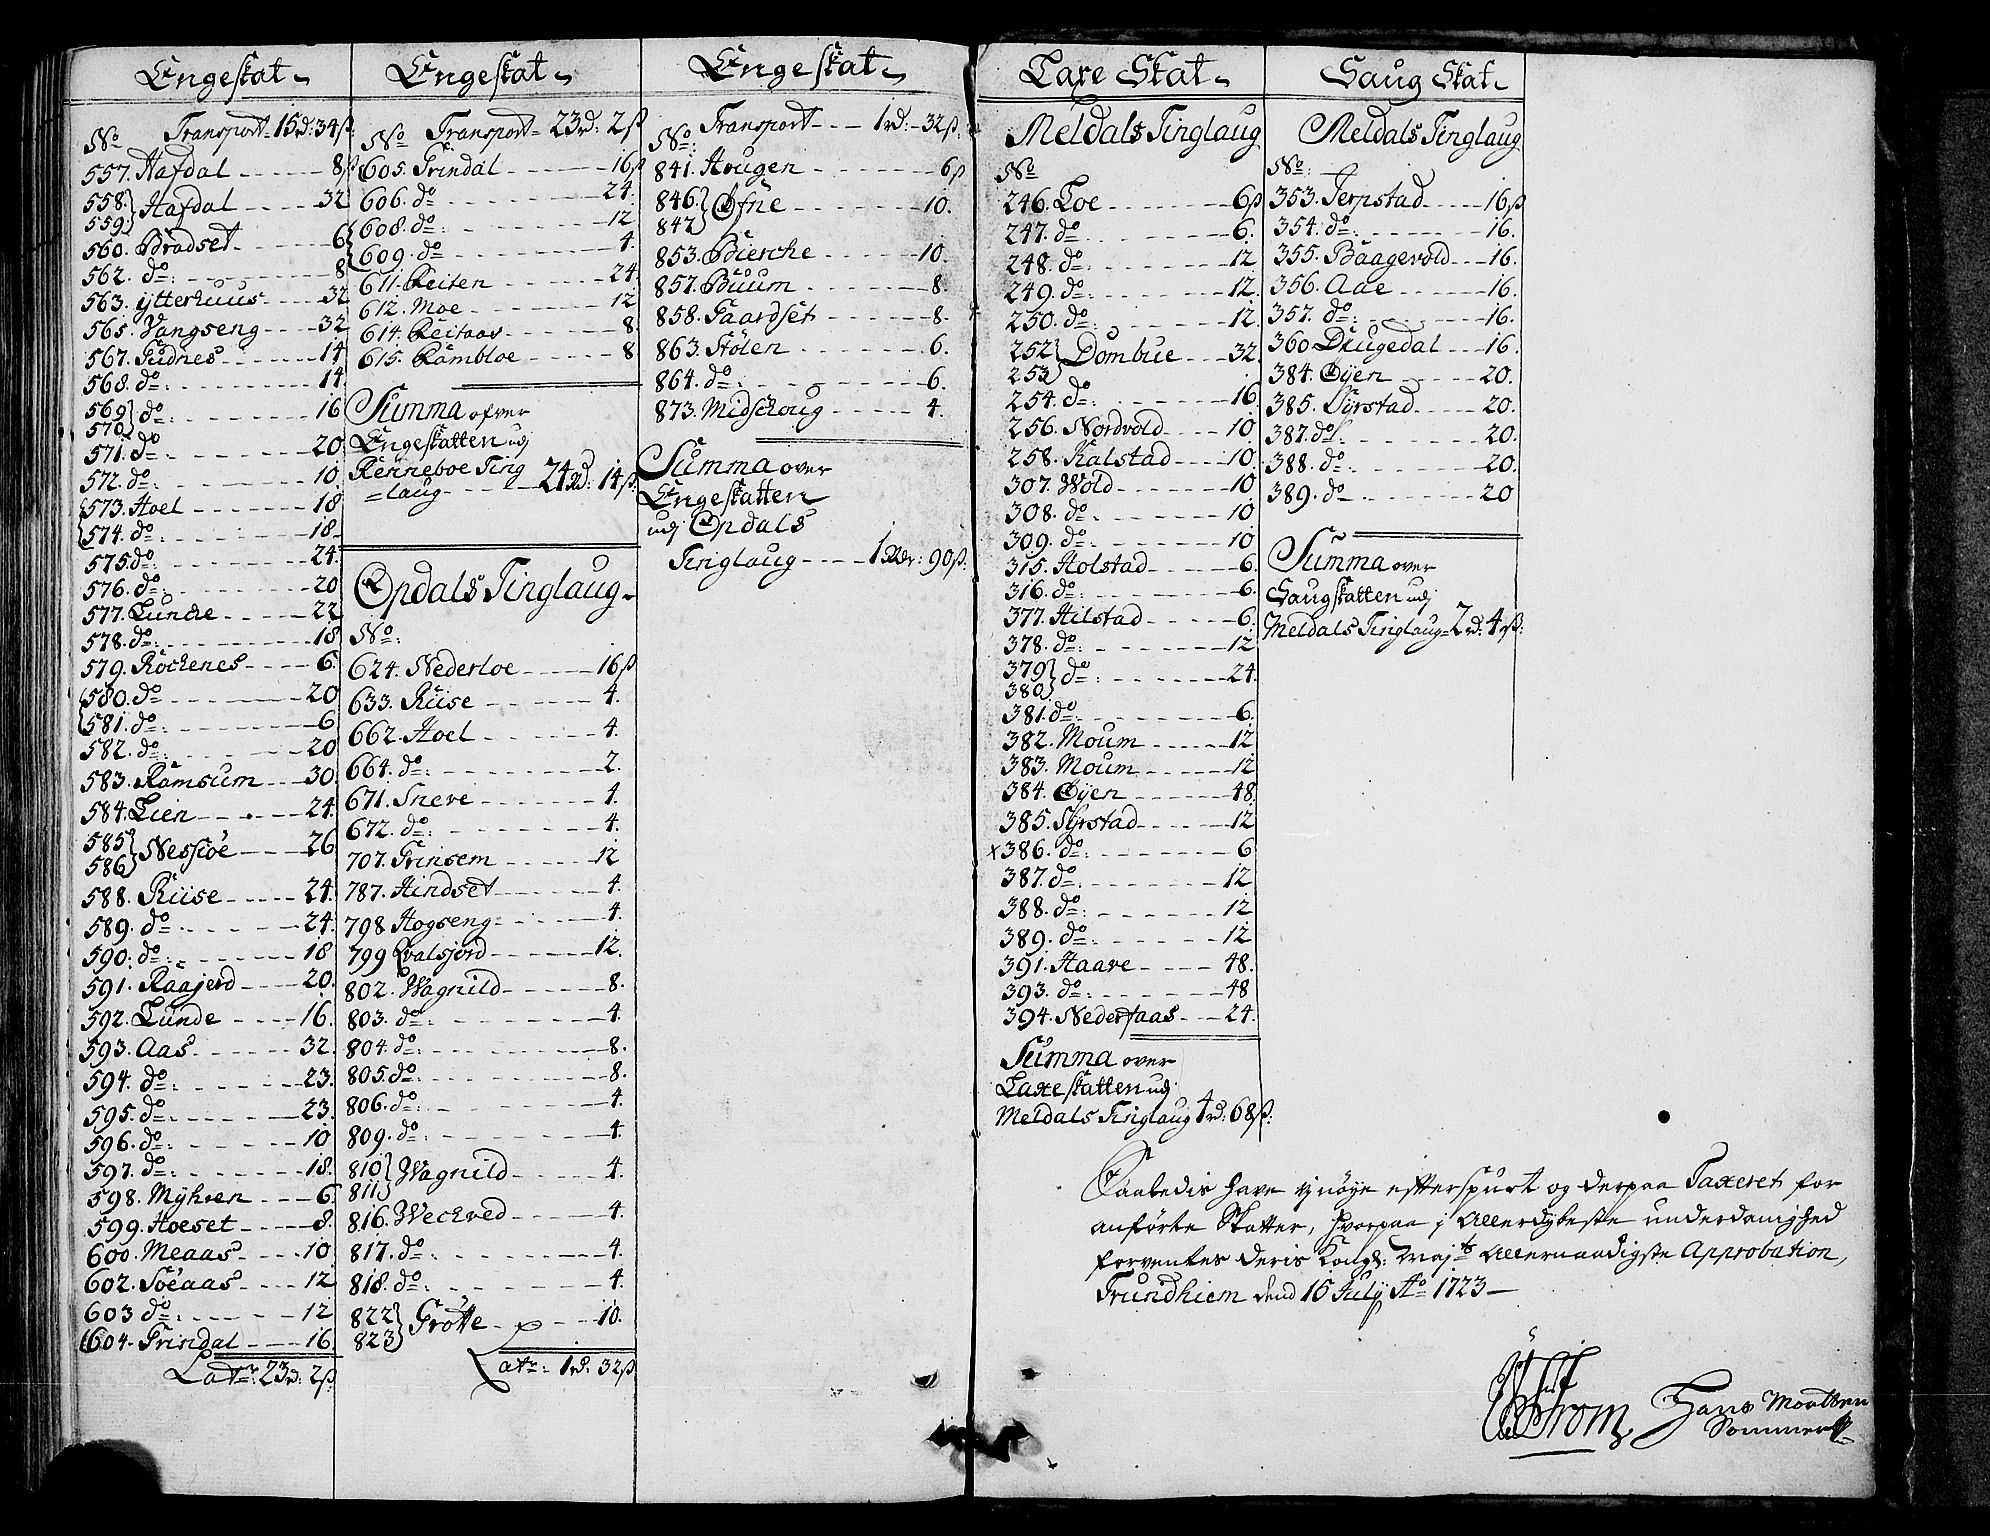 Engeskat
No Transport - 15 rd: 34 ß
557. Hafdal - 8 ß
558. 559. Hafdal - 32
560. Bradset - 6
562. do - 8
563. Ytterhuus - 32
565. Vangseng - 32
567. Sudnes - 14
568. do - 14
569. 570. do - 16
571. do - 20
572. do - 10
573. Hoel - 18
574. do - 18
575. do - 24
576. do - 20
577. Lunche - 22
578. do - 18
579. Röckenes - 6
580. do - 20
581. do - 6
582. do - 20
583. Ramsum - 30
584. Lien - 24
585. 586. Nessiöe - 26
588. Riise - 24
589. do - 24
590. do - 18
591. Raajerd - 20
592. Lunde - 16
593. Aas - 32
594. do - 23
595. do - 23
596. do - 10
597. do - 18
598. Myhren - 6
599. Hoeset - 8
600. Meaas - 10
602. Soeaas - 12
603 do - 12
604. Trindal - 16
Latr: 23 rd: 2 ß
Engeskat
No Transport - 23 rd: 2 ß
605. Trindal - 16 ß
606. do - 24
608. do - 12
609. do - 4
611. Reiten - 24
612. Moe - 12
614. Reitaas - 8
615. Rambloe - 8
Summa ofver
Engeskatten udj
Renneboe Ting
=laug - 24 rd: 14 ß
Opdals Tinglaug
No:
624. Nederloe - 16 ß
633. Riise - 4
662. Hoel - 4
664. do - 2
671. Sneve - 4
672. do - 4
707. Grinsem - 12
787. Hindset - 4
798 Hogseng - 4
799 Qvalsjord - 12
802. Wagnild - 8
803. do - 4
804. do - 8
805. do - 8
806. do - 4
809. do - 4
810 811 Wagnild - 4
816. Weckred - 4
817. do - 4
818. do - 4
822 823 Grötte - 10
Latr: 1 rd: 32 ß
Engeskat
Transport - 1 rd: 32 ß
No:
841. Hougen - 6 ß
846. 847 Öfne - 10
853. Bierche - 10
857. Buum - 8
858. Taardset - 8
863. Stölen - 6
864. do - 6
873. Midschoug - 4
Summa over
Engeskatten
udj Opdals
Tinglaug - 1 Rdr: 90 ß
Laxe Skat
Meldals Tinglaug
No
246. Loe - 6 ß
247. do - 6
248. do - 12
249. do - 12
250. do - 12
252 253 Dombue - 32
254. do - 16
256. Nordvold - 10
258. Kalstad - 10
307. Wold - 10
308. do - 10
309. do - 10
315. Holstad - 6
316. do - 6
377. Hilstad - 6
378. do - 12
379 380 do - 24
381. do - 6
382. Moum - 12
383. Moum - 12
384. Öyen - 48
385. Syrstad - 12
x 386. do - 6
387. do - 12
388. do - 12
389. do - 12
391. Haare - 48
393. do - 48
394. Nederaas - 24
Summa over
Laxeskatten udj
Meldals Tinglaug 4 rd: 68 ß
Saug Skat
Meldals Tinglaug
No:
353. Jerpstad - 16 ß
354. do - 16
355. Baagevold - 16
356. Aae - 16
357. do - 16
360 Drugedal - 16
384. Öyen - 20
385. Syrstad - 20
387. do - 20
388. do - 20
389. do - 20
Summa over
Saugskatten udj
Meldals Tinglaug - 2 rd: 4 ß:
Saaledis have vj nöye efterspurt og derpaa Taxeret for
anförte Skatter, hvorpaa j Allerdybeste underdanighed
forventes deris Kongl: Majts Allernaadigste Approbation,
Trundhiem dend 16 July Ao 1723
Ström Hans Moritsen
Sommer